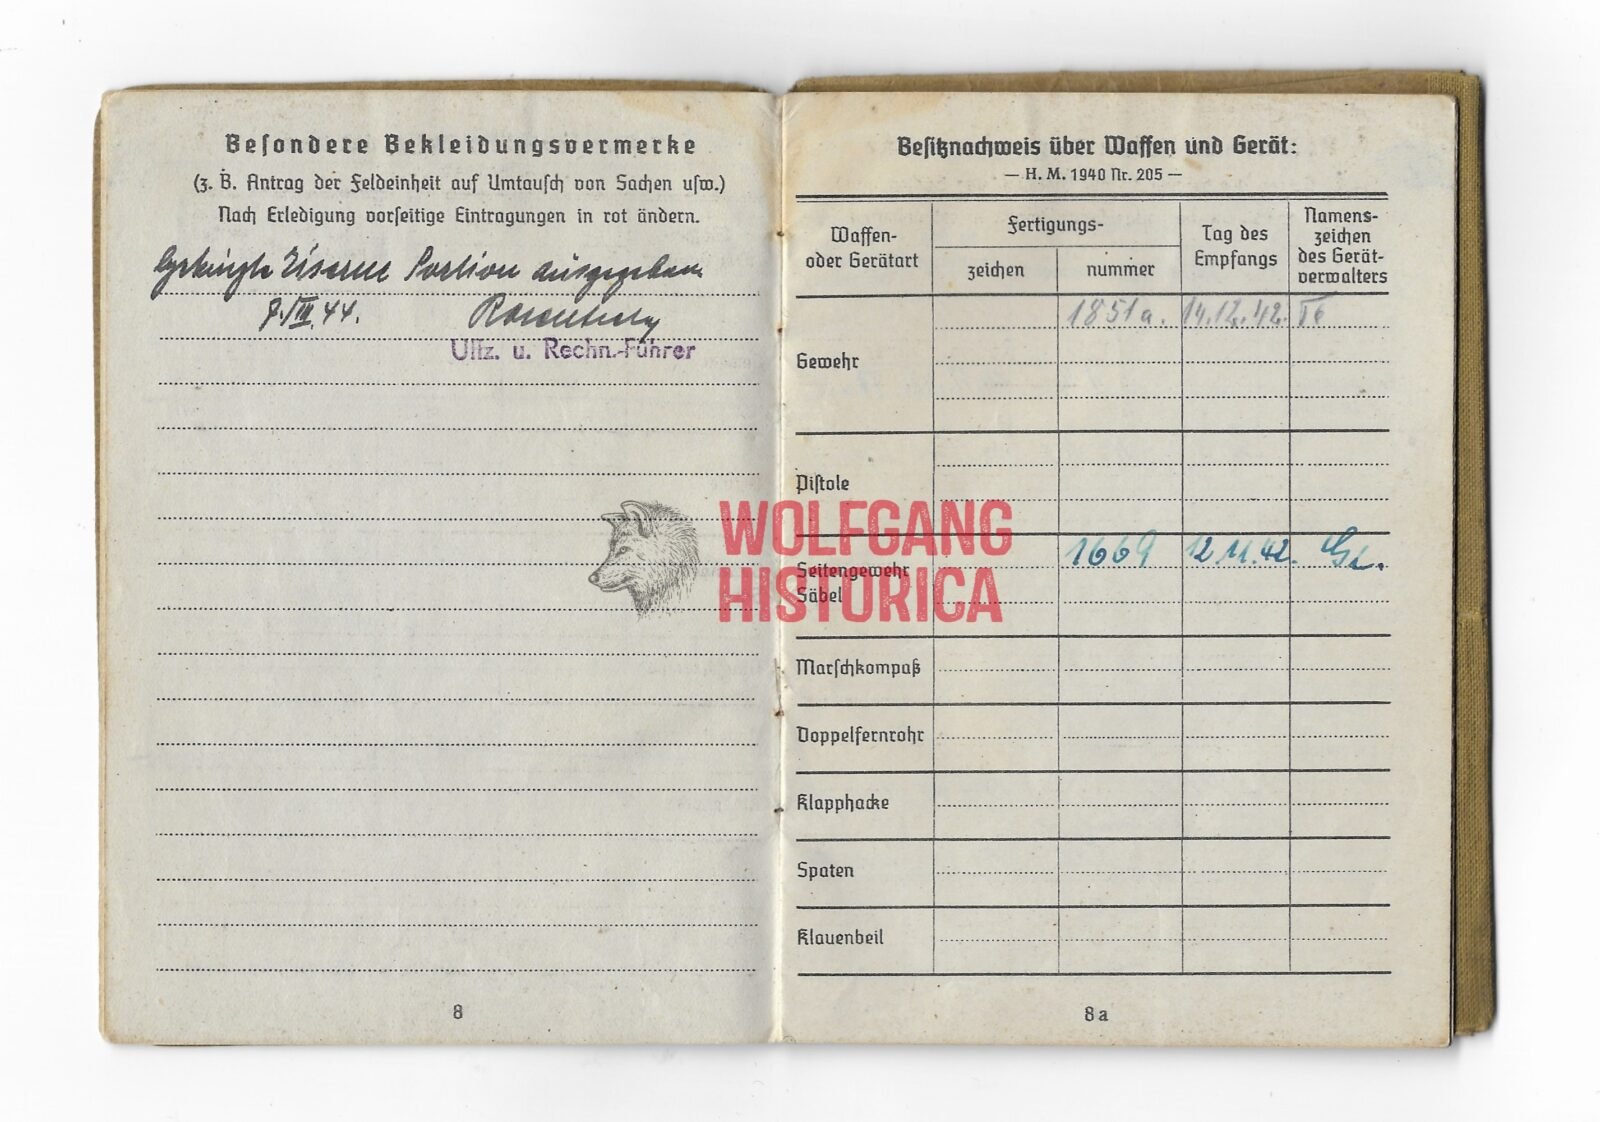 Besondere Bekleidungsvermerke
(z. B. Antrag der Feldeinheit auf Umtausch von Sachen usw.)
Nach Erledigung vorseitige Eintragungen in rot ändern.
Eiserne Portion ausgegeben
7. VIII. 44.
Uffz. u. Rechn.-Führer
8
Besitznachweis über Waffen und Gerät:
— H. M. 1940 Nr. 205 —
Waffen-
oder Gerätart
Fertigungs-
zeichen
nummer
Tag des
Empfangs
Namens-
zeichen
des Gerät-
verwalters
Gewehr
1851a. 14.12.42.
Pistole
Seitengewehr
Säbel
1669 12.11.42.
Marschkompaß
Doppelfernrohr
Klapphacke
Spaten
Klauenbeil
8a
WOLFGANG
HISTORICA